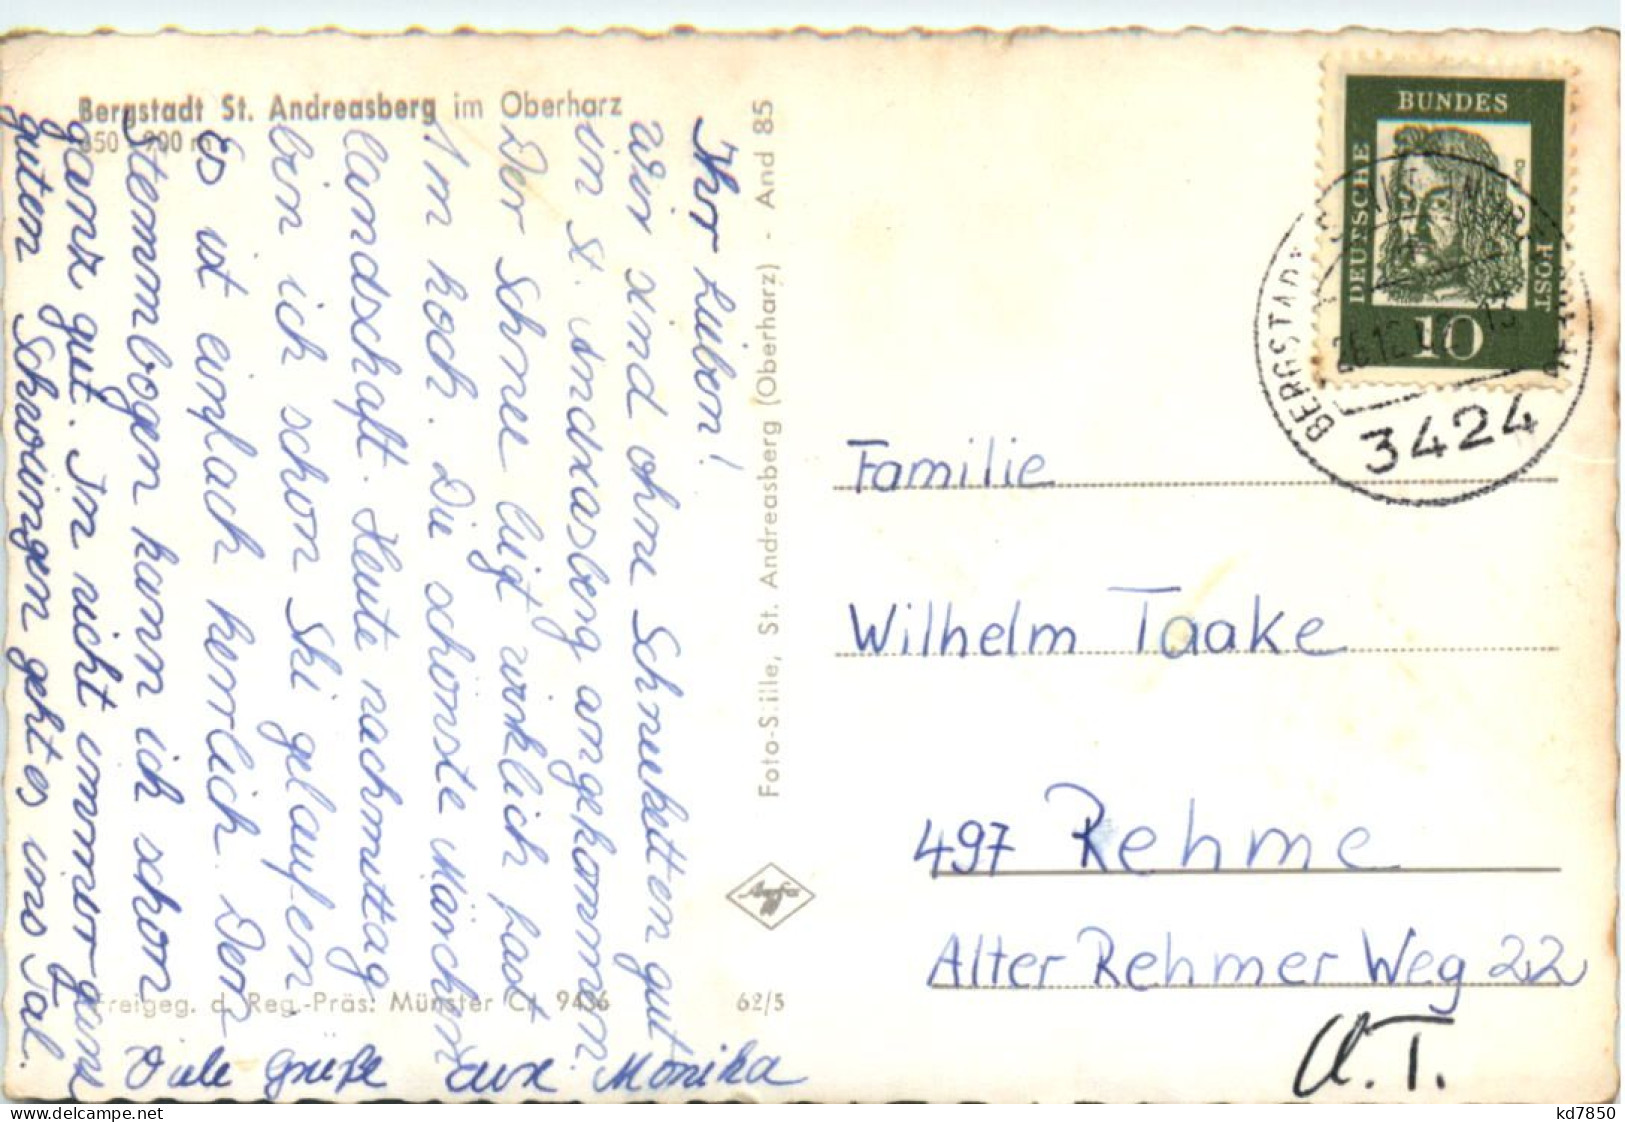 Bergstadt St. Andreasberg im Oberharz
Ihr Lieben!
Wir sind ohne Schneeketten gut
in St. Andreasberg angekommen.
Der Schnee liegt wirklich fast
1 m hoch. Die schönste Märchen
landschaft. Heute nachmittag
bin ich schon Ski gelaufen
Es ist einfach herrlich. Den
Stemmbogen kann ich schon
ganz gut. In nicht immer ganz
guten Schwüngen geht es ins Tal.
Viele Grüße eure Monika
Foto-Stille, St. Andreasberg (Oberharz) - And 85
Freigeg. d. Reg.-Präs: Münster Ct. 9436
62/5
Agfa
DEUTSCHE
BUNDES
POST
10
BERGSTADT
3424
Familie
Wilhelm Taake
497 Rehme
Alter Rehmer Weg 22
A.T.
kd7850